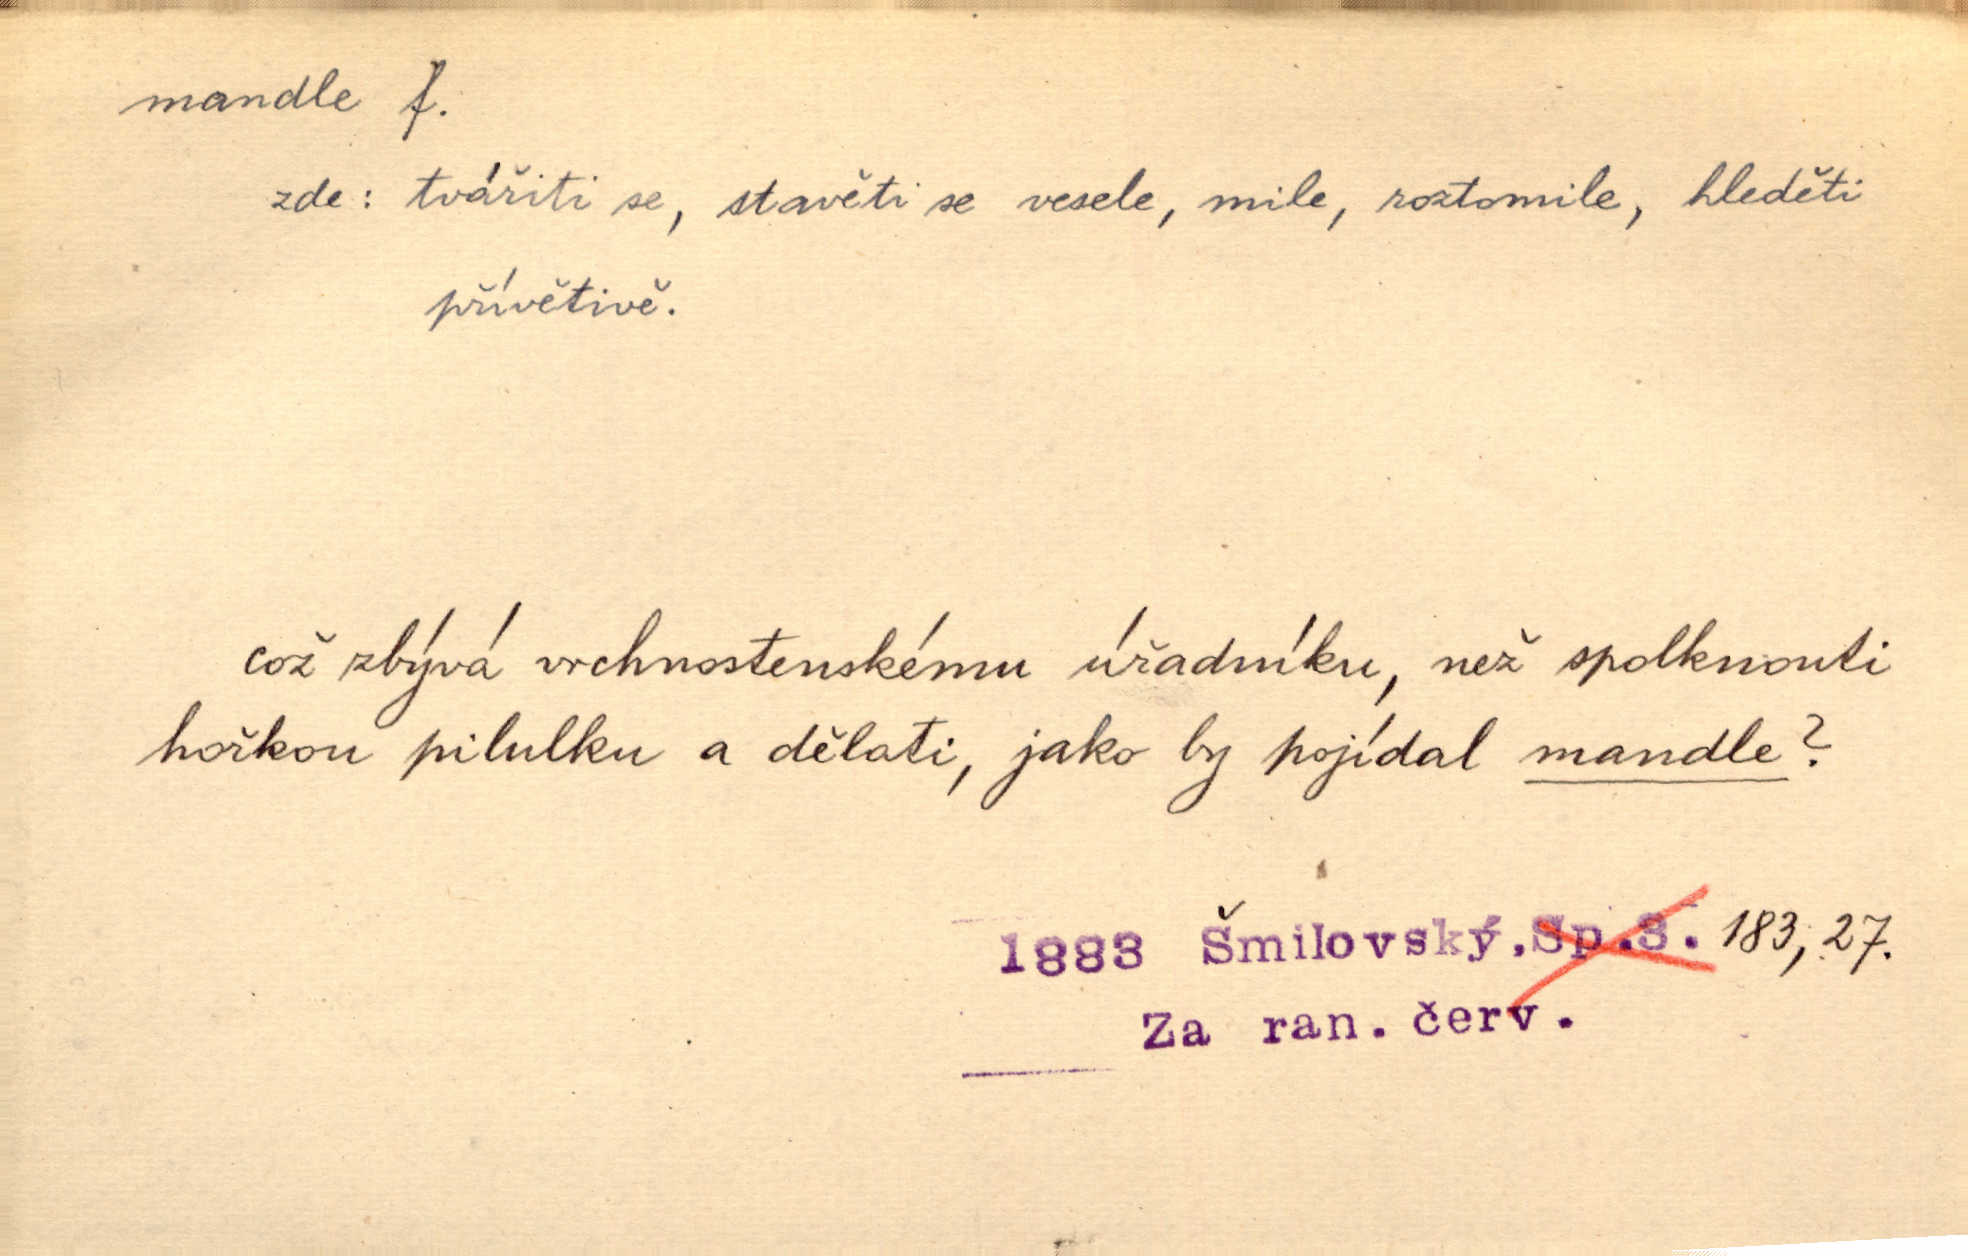 mandle f.
zde: tvářiti se, stavěti se vesele, mile, roztomile, hleděti
přívětivě.
což zbývá vrchnostenskému úřadníku, než spolknouti
hořkou pilulku a dělati, jako by pojídal mandle?
1883 Šmilovský, Sp.3. 183, 27.
Za ran. červ.